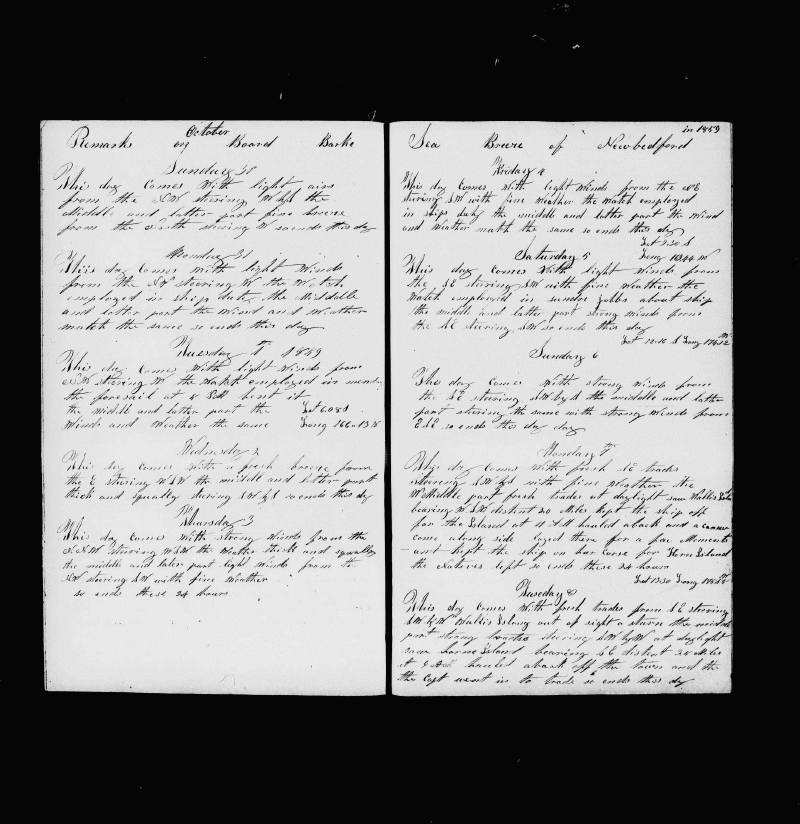 October
Remarks on Board Barke
Sunday 30
This day Comes With light airs
from the SW steering W by S the
Middle and latter part fine breeze
from the South steering W so ends this day
Monday 31
This day Comes With light Winds
from the steering W the Watch
employed in ships duty the Middle
and latter part the Wind and Weather
match the same so ends this day
Tuesday 1 1859
This day Comes With light Winds from
steering W the Watch employed in mending
the foresail at 4 PM bent it
the middle and latter part the Lat 6.08 S
Winds and Weather the same Long
Wednesday 2
This day Comes With a fresh breeze from
the E steering WSW the middle and latter part
thick and squally steering SW so ends this day
Thursday 3
This day Comes With strong Winds from the
steering WSW the Weather thick and squally
the middle and later part light Winds from the
steering SW with fine Weather
so ends these 24 hours
in 1859
Sea Breeze of Newbedford
Friday 4
This day Comes With light Winds from the NE
steering SW with fine Weather the Watch employed
in ships duty the middle and latter part the Wind
and Weather match the same so ends this day
Lat 9.20 S
Long
Saturday 5
This day Comes With light Winds from
the SE steering SW with fine Weather the
Watch employed in sundre Jobbs about ship
the middle and latter part strong Winds from
the SE steering SW so ends this day
Lat 12.16 S Long
Sunday 6
This day Comes With strong Winds from
the SE steering SW by S the middle and latter
part steering the same with strong Winds from
ESE so ends the day
Monday 7
This day Comes With fresh SE trades
steering with fine Weather the
Middle part fresh trades at daylight saw Wallis Isla
bearing WSW distent 20 Miles kept the ship off
for the Island at 11 AM hauled aback and a canoe
come along side layed there for a fue Moments
and kept the ship on har Corse for Horn Island
the Natives left so ends these 24 hours
Lat 13.30 Long
Tuesday 8
This day Comes With fresh trades from SE steering
SW by W Wallis Island out of sight a sturn the middle
part strong trades steering SW by W at daylight
saw horne Island bearing distent 20 Miles
at 9 AM hauled aback off the town and the
the Capt went in to trade so ends this day